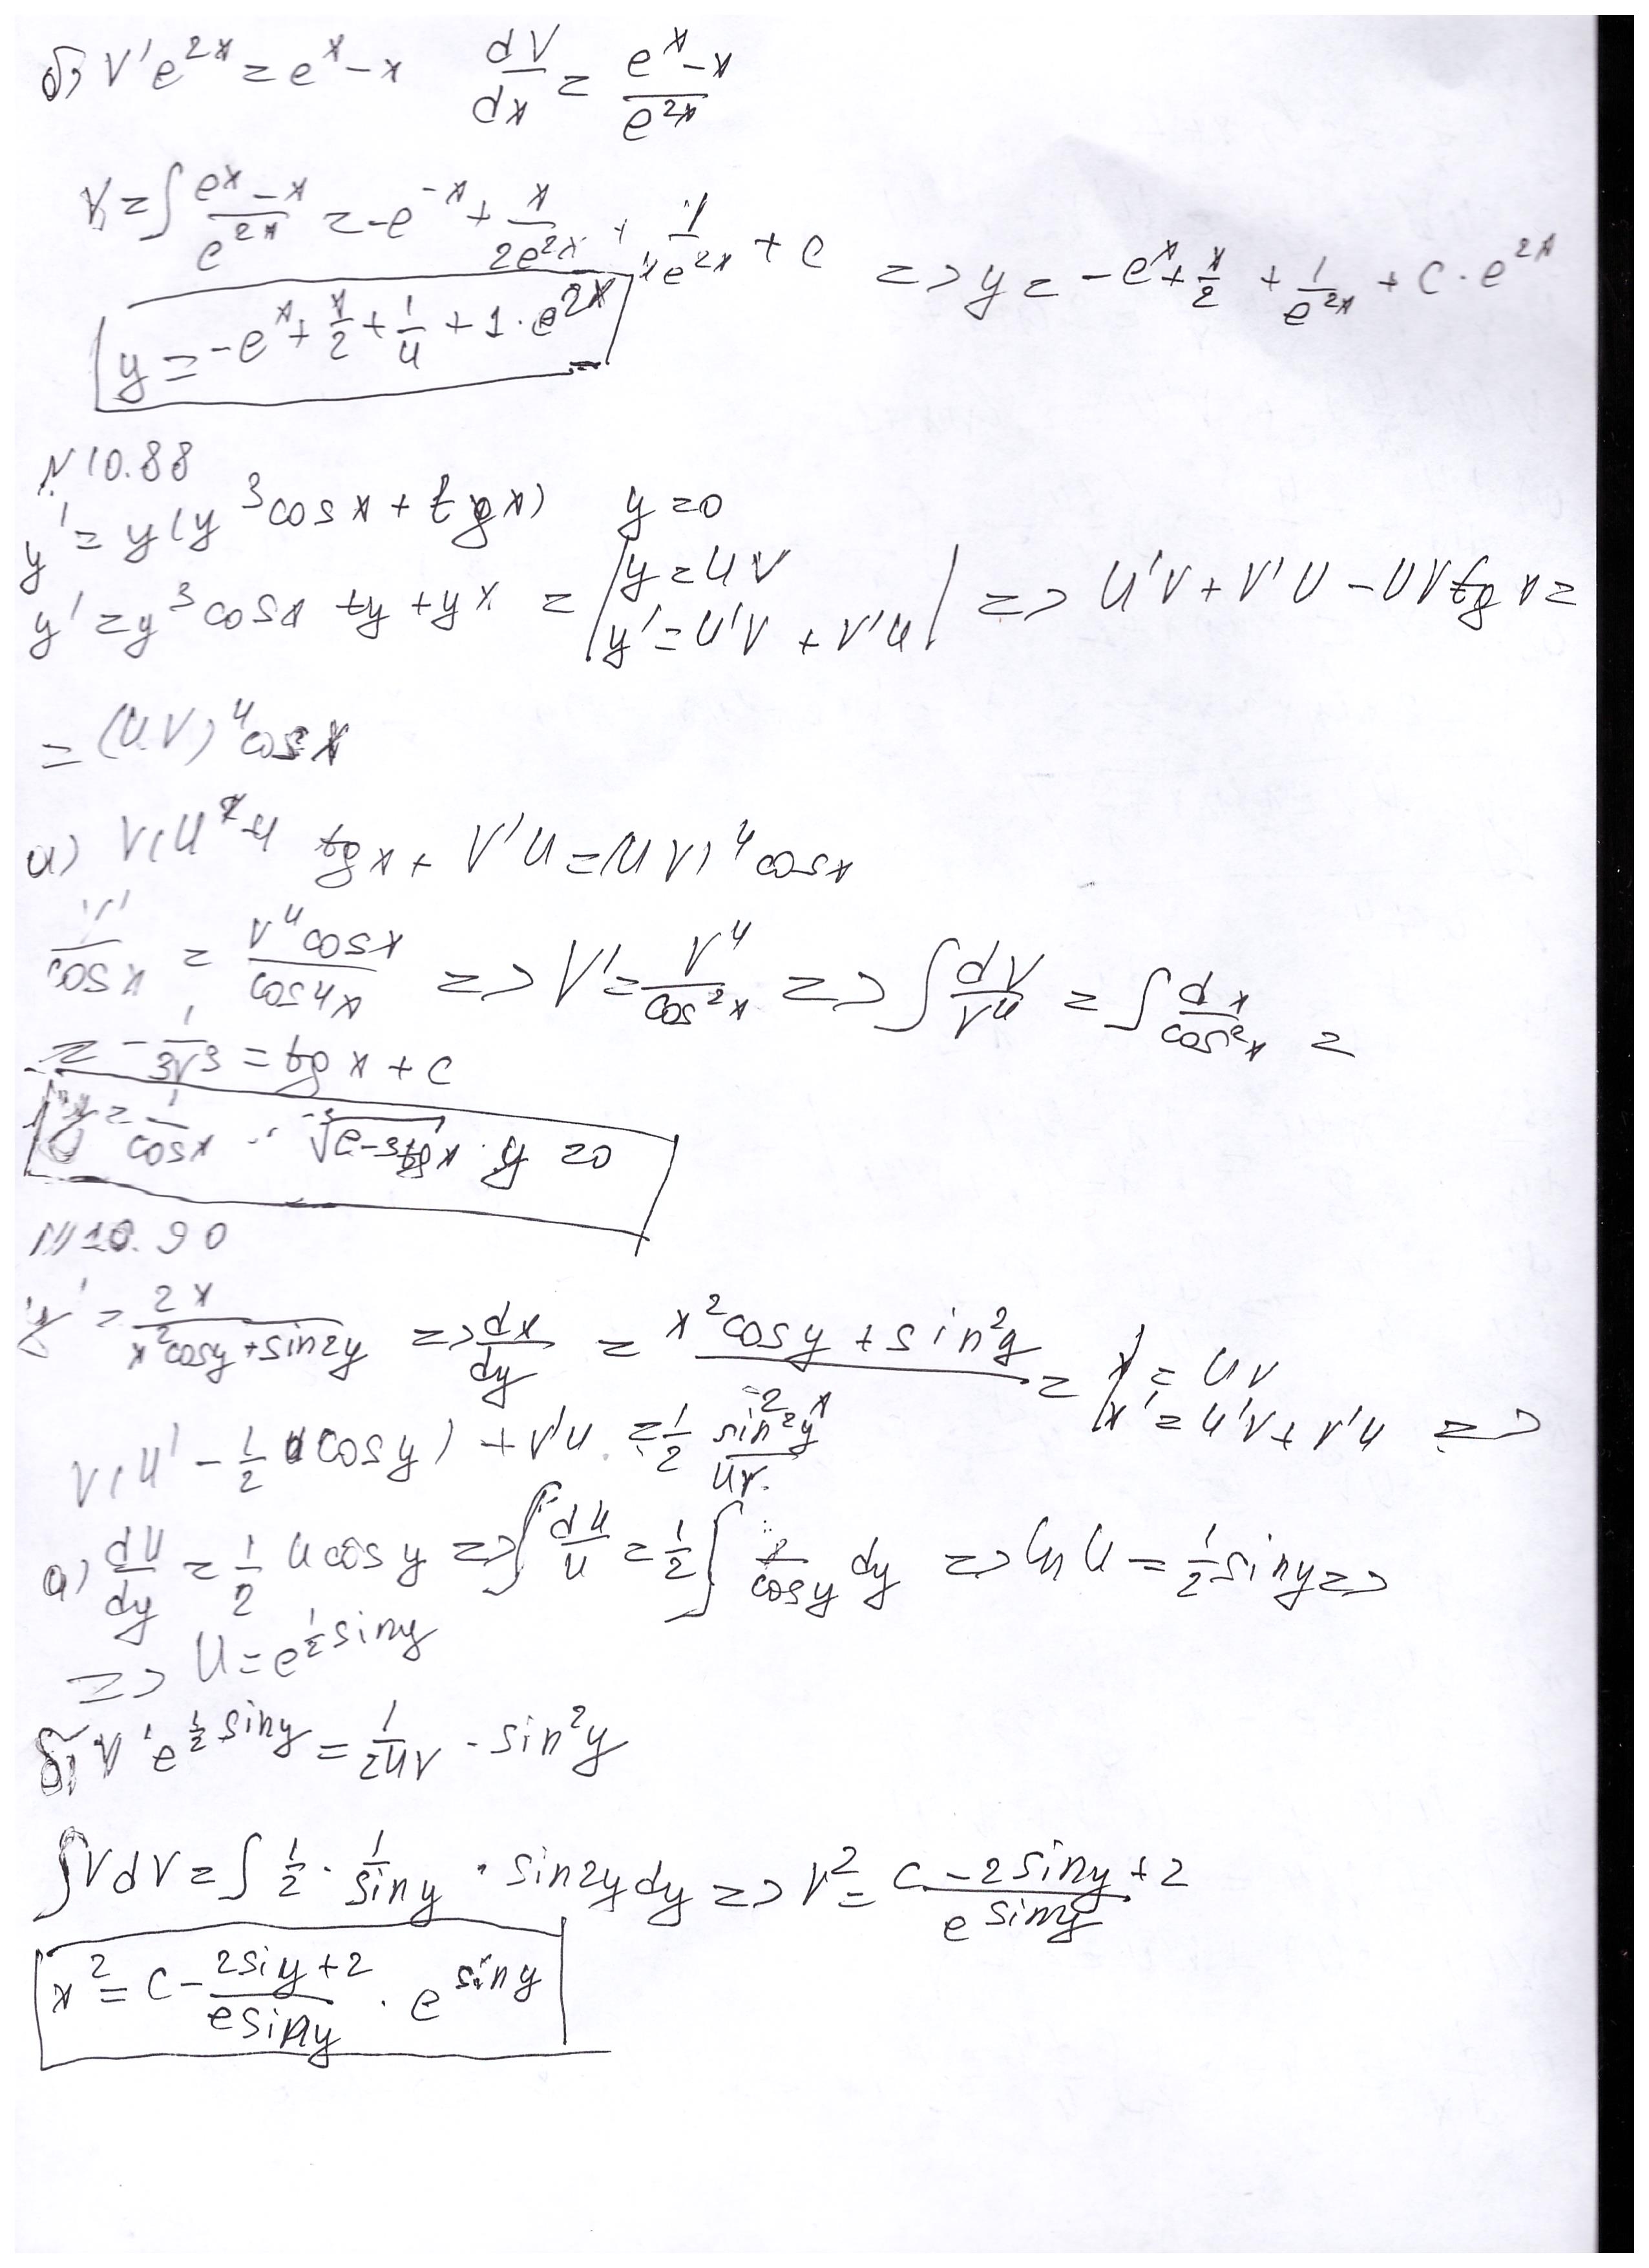 б) V'e^{2x} = e^x - x   dV/dx = (e^x - x)/e^{2x}
V = ∫ (e^x - x)/e^{2x} = -e^{-x} + x/(2e^{2x}) + 1/(4e^{2x}) + C => y = -e^x + x/2 + 1/e^{2x} + C · e^{2x}
y = -e^x + x/2 + 1/4 + 1 · e^{2x}
N 10.88
y' = y(y^3 cos x + tg x)   y = 0
y' = y^3 cos x + y + y x = | y = UV   y' = U'V + V'U | => U'V + V'U - UV tg x =
= (UV)^4 cos x
а) V(U' - U tg x + V'U = (UV)^4 cos x
V'/cos x = V^4 cos x/cos 4x => V' = V^4/cos^2 x => ∫ dV/V^4 = ∫ dx/cos^2 x =
= -1/(3V^3) = tg x + C
y = 1/cos x · ^{-3}√(C - 3tg x   y = 0
N 10.90
y' = 2x/(x^2 cos y + sin 2y) => dx/dy = (x^2 cos y + sin^2 y)/(2x) = | x = UV   x' = U'V + V'U =>
V(U' - 1/2 U cos y) + V'U = 1/2 sin^2 y/(UV)
а) dU/dy = 1/2 U cos y => ∫ dU/U = 1/2 ∫ cos y dy => ln U = 1/2 sin y =>
=> U = e^{1/2 sin y}
б) V'e^{1/2 sin y} = 1/(2UV) · sin^2 y
∫ V dV = ∫ 1/2 · 1/sin y · sin 2y dy => V^2 = C - (2 sin y + 2)/e^{sin y}
x^2 = C - (2 siy + 2)/(e sin y) · e^{sin y}